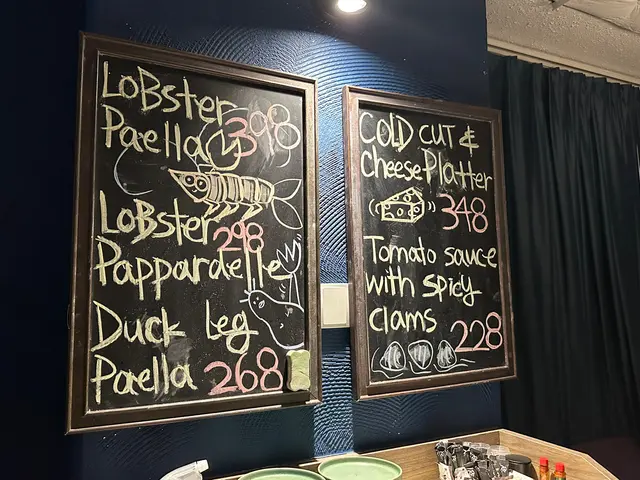 LoBster
Paella 398
LoBster 298
Pappardelle
Duck Leg
Paella 268
COLD CUT &
Cheese Platter
348
Tomato sauce
with spicy
clams 228